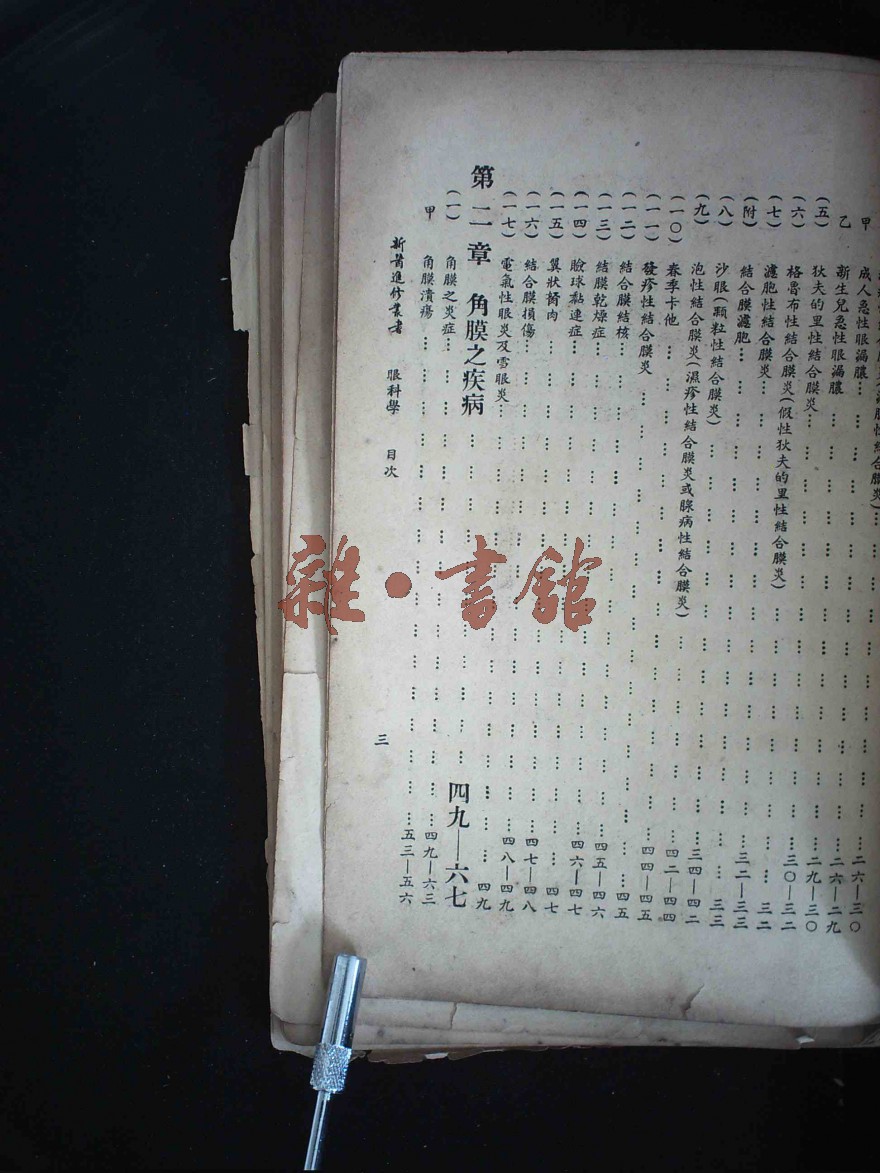 膿性結合膜炎)……二六—三〇
甲 成人急性眼漏膿……二六—二九
乙 新生兒急性眼漏膿……二九—三〇
(五) 狄夫的里性結合膜炎……三〇—三二
(六) 格魯布性結合膜炎(假性狄夫的里性結合膜炎)……三二
(七) 濾胞性結合膜炎……三二—三三
(附) 結合膜濾胞……三三
(八) 沙眼(顆粒性結合膜炎)……三四—四二
(九) 泡性結合膜炎(濕疹性結合膜炎或腺病性結合膜炎)……四二—四四
(一〇) 春季卡他……四四—四五
(一一) 發疹性結合膜炎……四五
(一二) 結合膜結核……四五—四六
(一三) 結膜乾燥症……四六—四七
(一四) 瞼球黏連症……四七
(一五) 翼狀胬肉……四七—四八
(一六) 結合膜損傷……四八—四九
(一七) 電氣性眼炎及雪眼炎……四九
第二章 角膜之疾病……四九—六七
(一) 角膜之炎症……四九—六三
甲 角膜潰瘍……五三—五六
新醫進修叢書 眼科學 目次 三
雜·書館